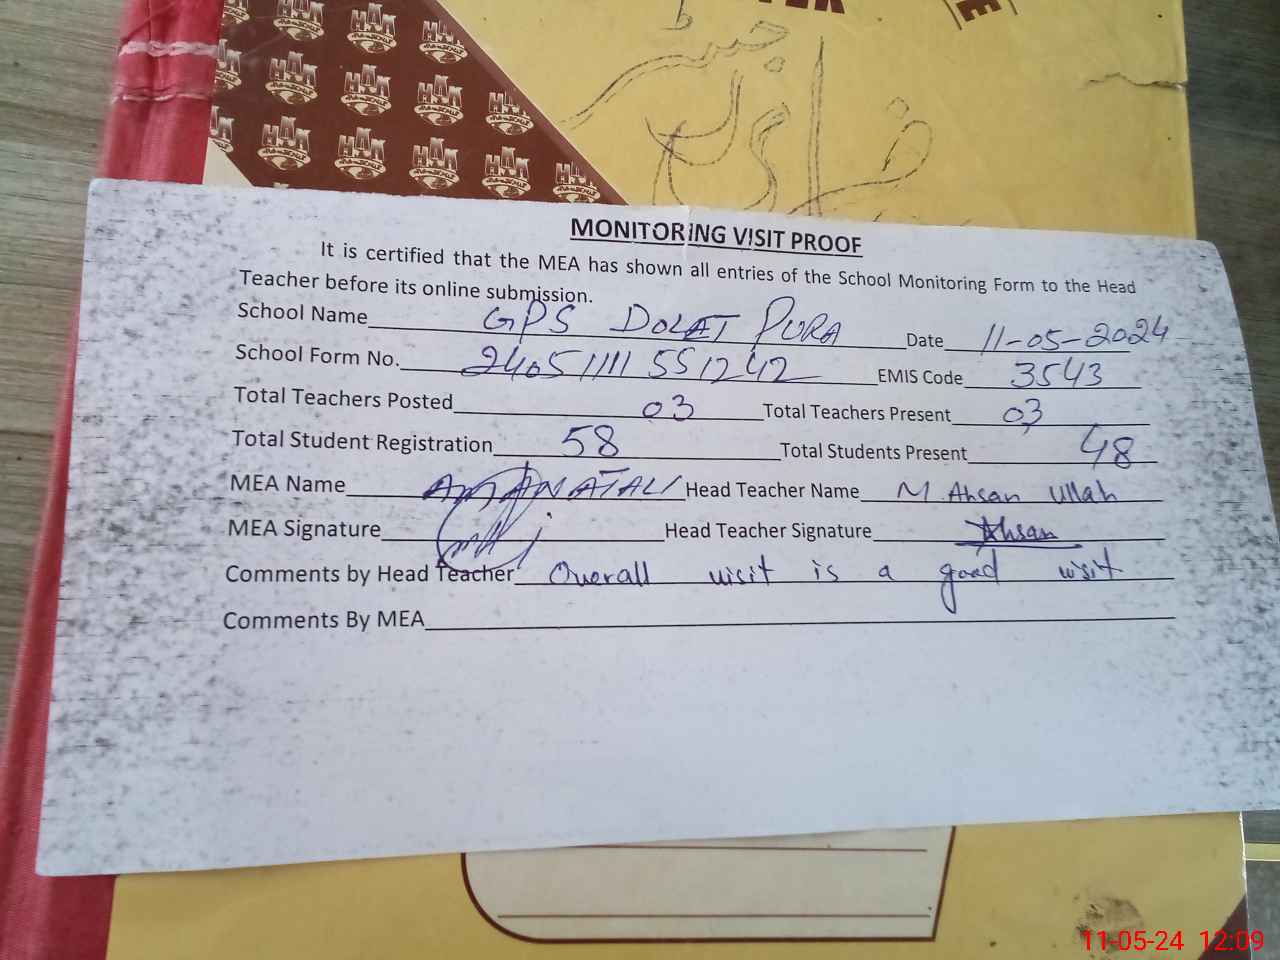 HAK
MONITORING VISIT PROOF
It is certified that the MEA has shown all entries of the School Monitoring Form to the Head
Teacher before its online submission.
School Name GPS DOLAT PURA Date 11-05-2024
School Form No. 24051111551242 EMIS Code 3543
Total Teachers Posted 03 Total Teachers Present 03
Total Student Registration 58 Total Students Present 48
MEA Name AMANAT ALI Head Teacher Name M. Ahsan Ullah
MEA Signature Head Teacher Signature Ahsan
Comments by Head Teacher Overall visit is a good visit
Comments By MEA
11-05-24 12:09